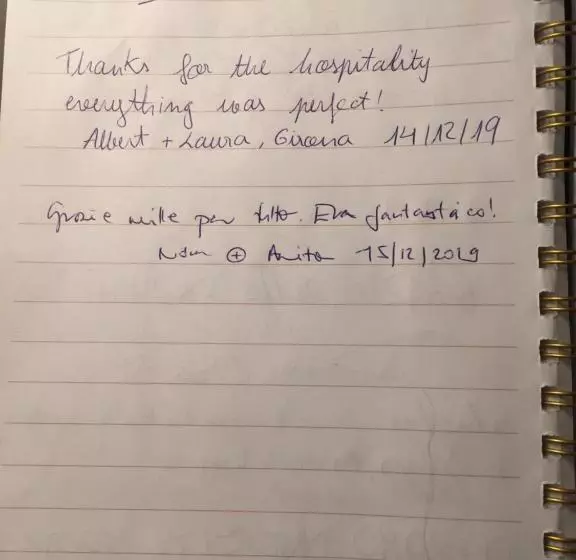 Thanks for the hospitality
everything was perfect!
Albert + Laura, Girona 14/12/19
Grazie mille per tutto. Era fantastico!
⊕ Anita 15/12/2019